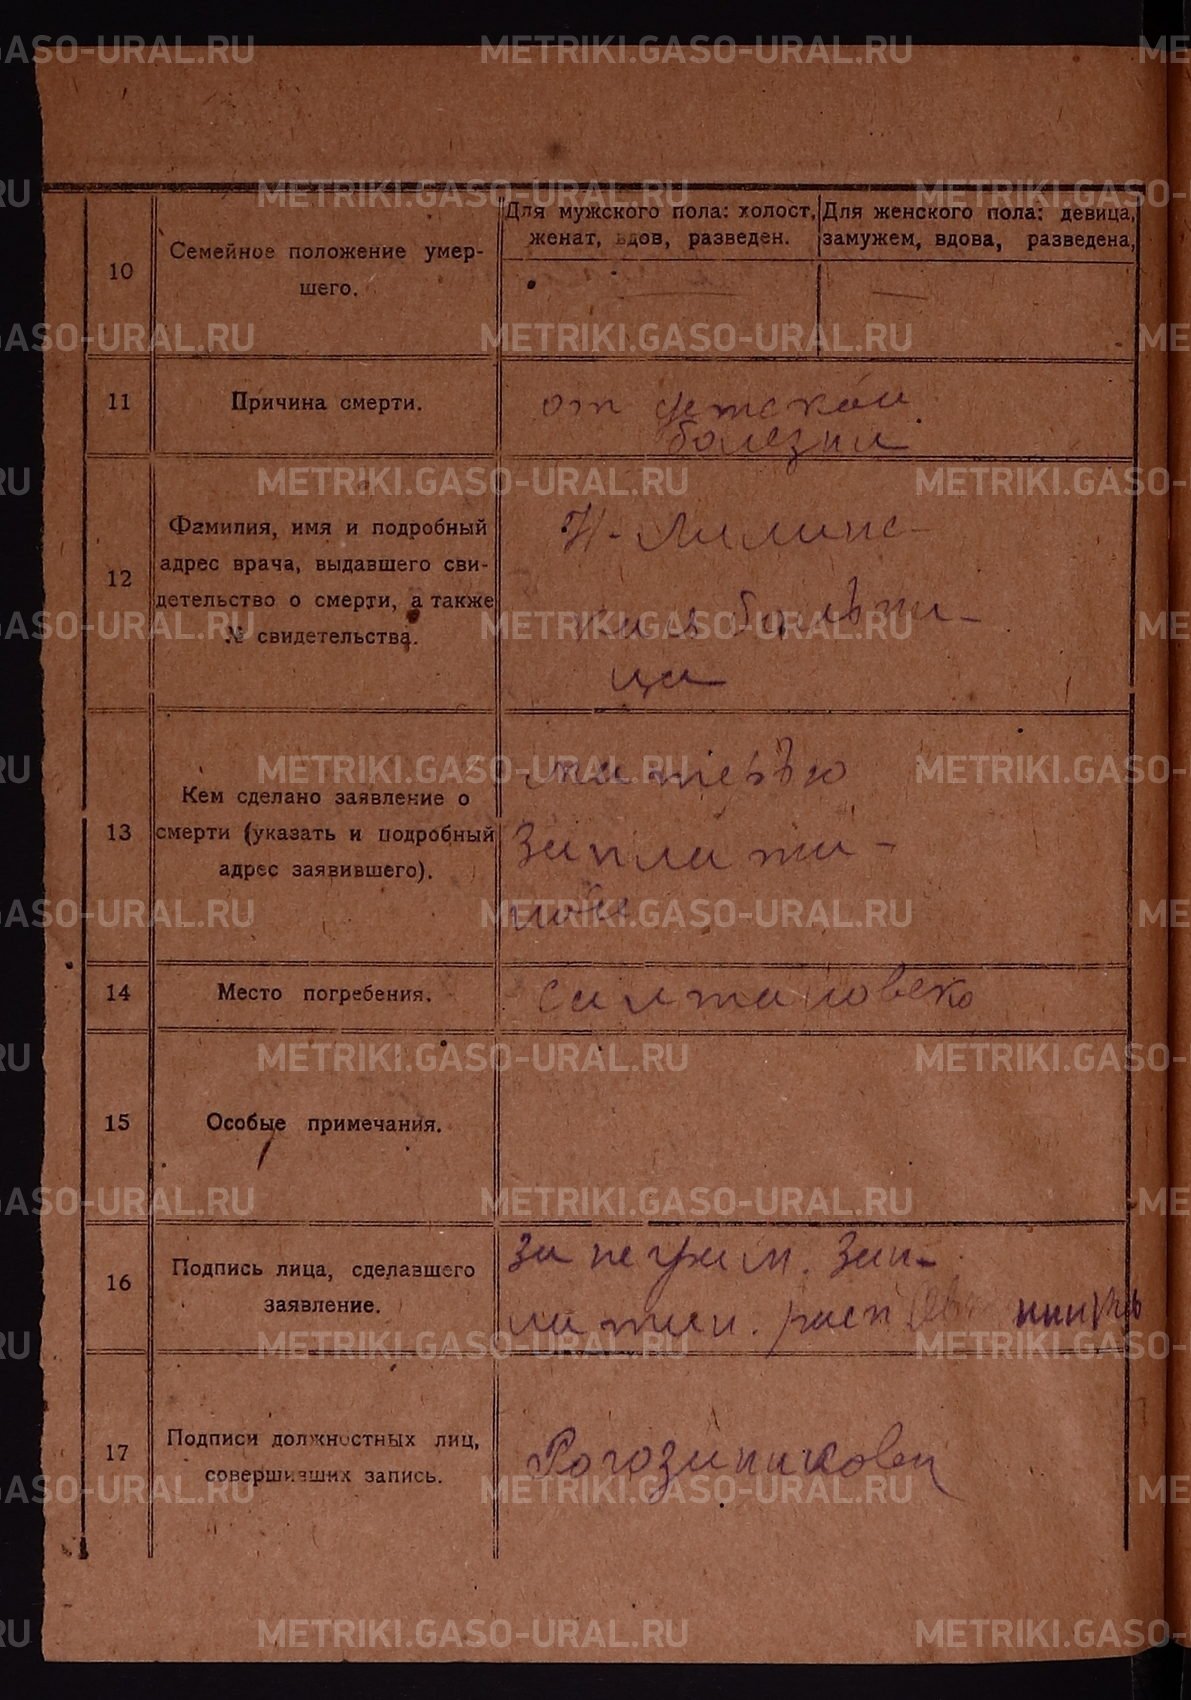 Для мужского пола: холост, женат, вдов, разведен.
Для женского пола: девица, замужем, вдова, разведена,
10
Семейное положение умер-
шего.
11
Причина смерти.
от детской
болезни
12
Фамилия, имя и подробный
адрес врача, выдавшего сви-
детельство о смерти, а также
№ свидетельства.
Н-
больни-
ца
13
Кем сделано заявление о
смерти (указать и подробный
адрес заявившего).
матерью
Заплати-
ной
14
Место погребения.
Салтановско
15
Особые примечания.
16
Подпись лица, сделавшего
заявление.
за неграм. Зап-
латин. расп
17
Подписи должностных лиц,
совершивших запись.
Рогозинникова
METRIKI.GASO-URAL.RU